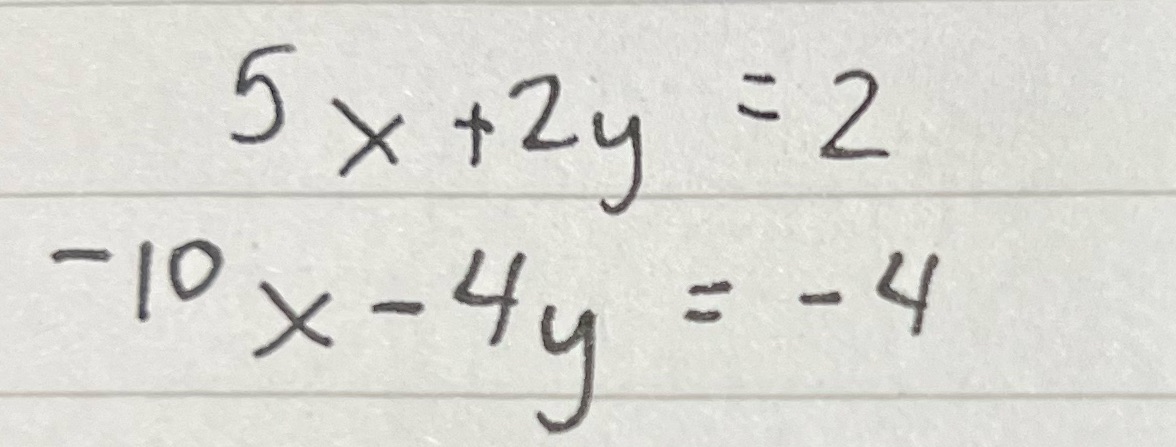 5x+2y=2
-10x-4y=-4